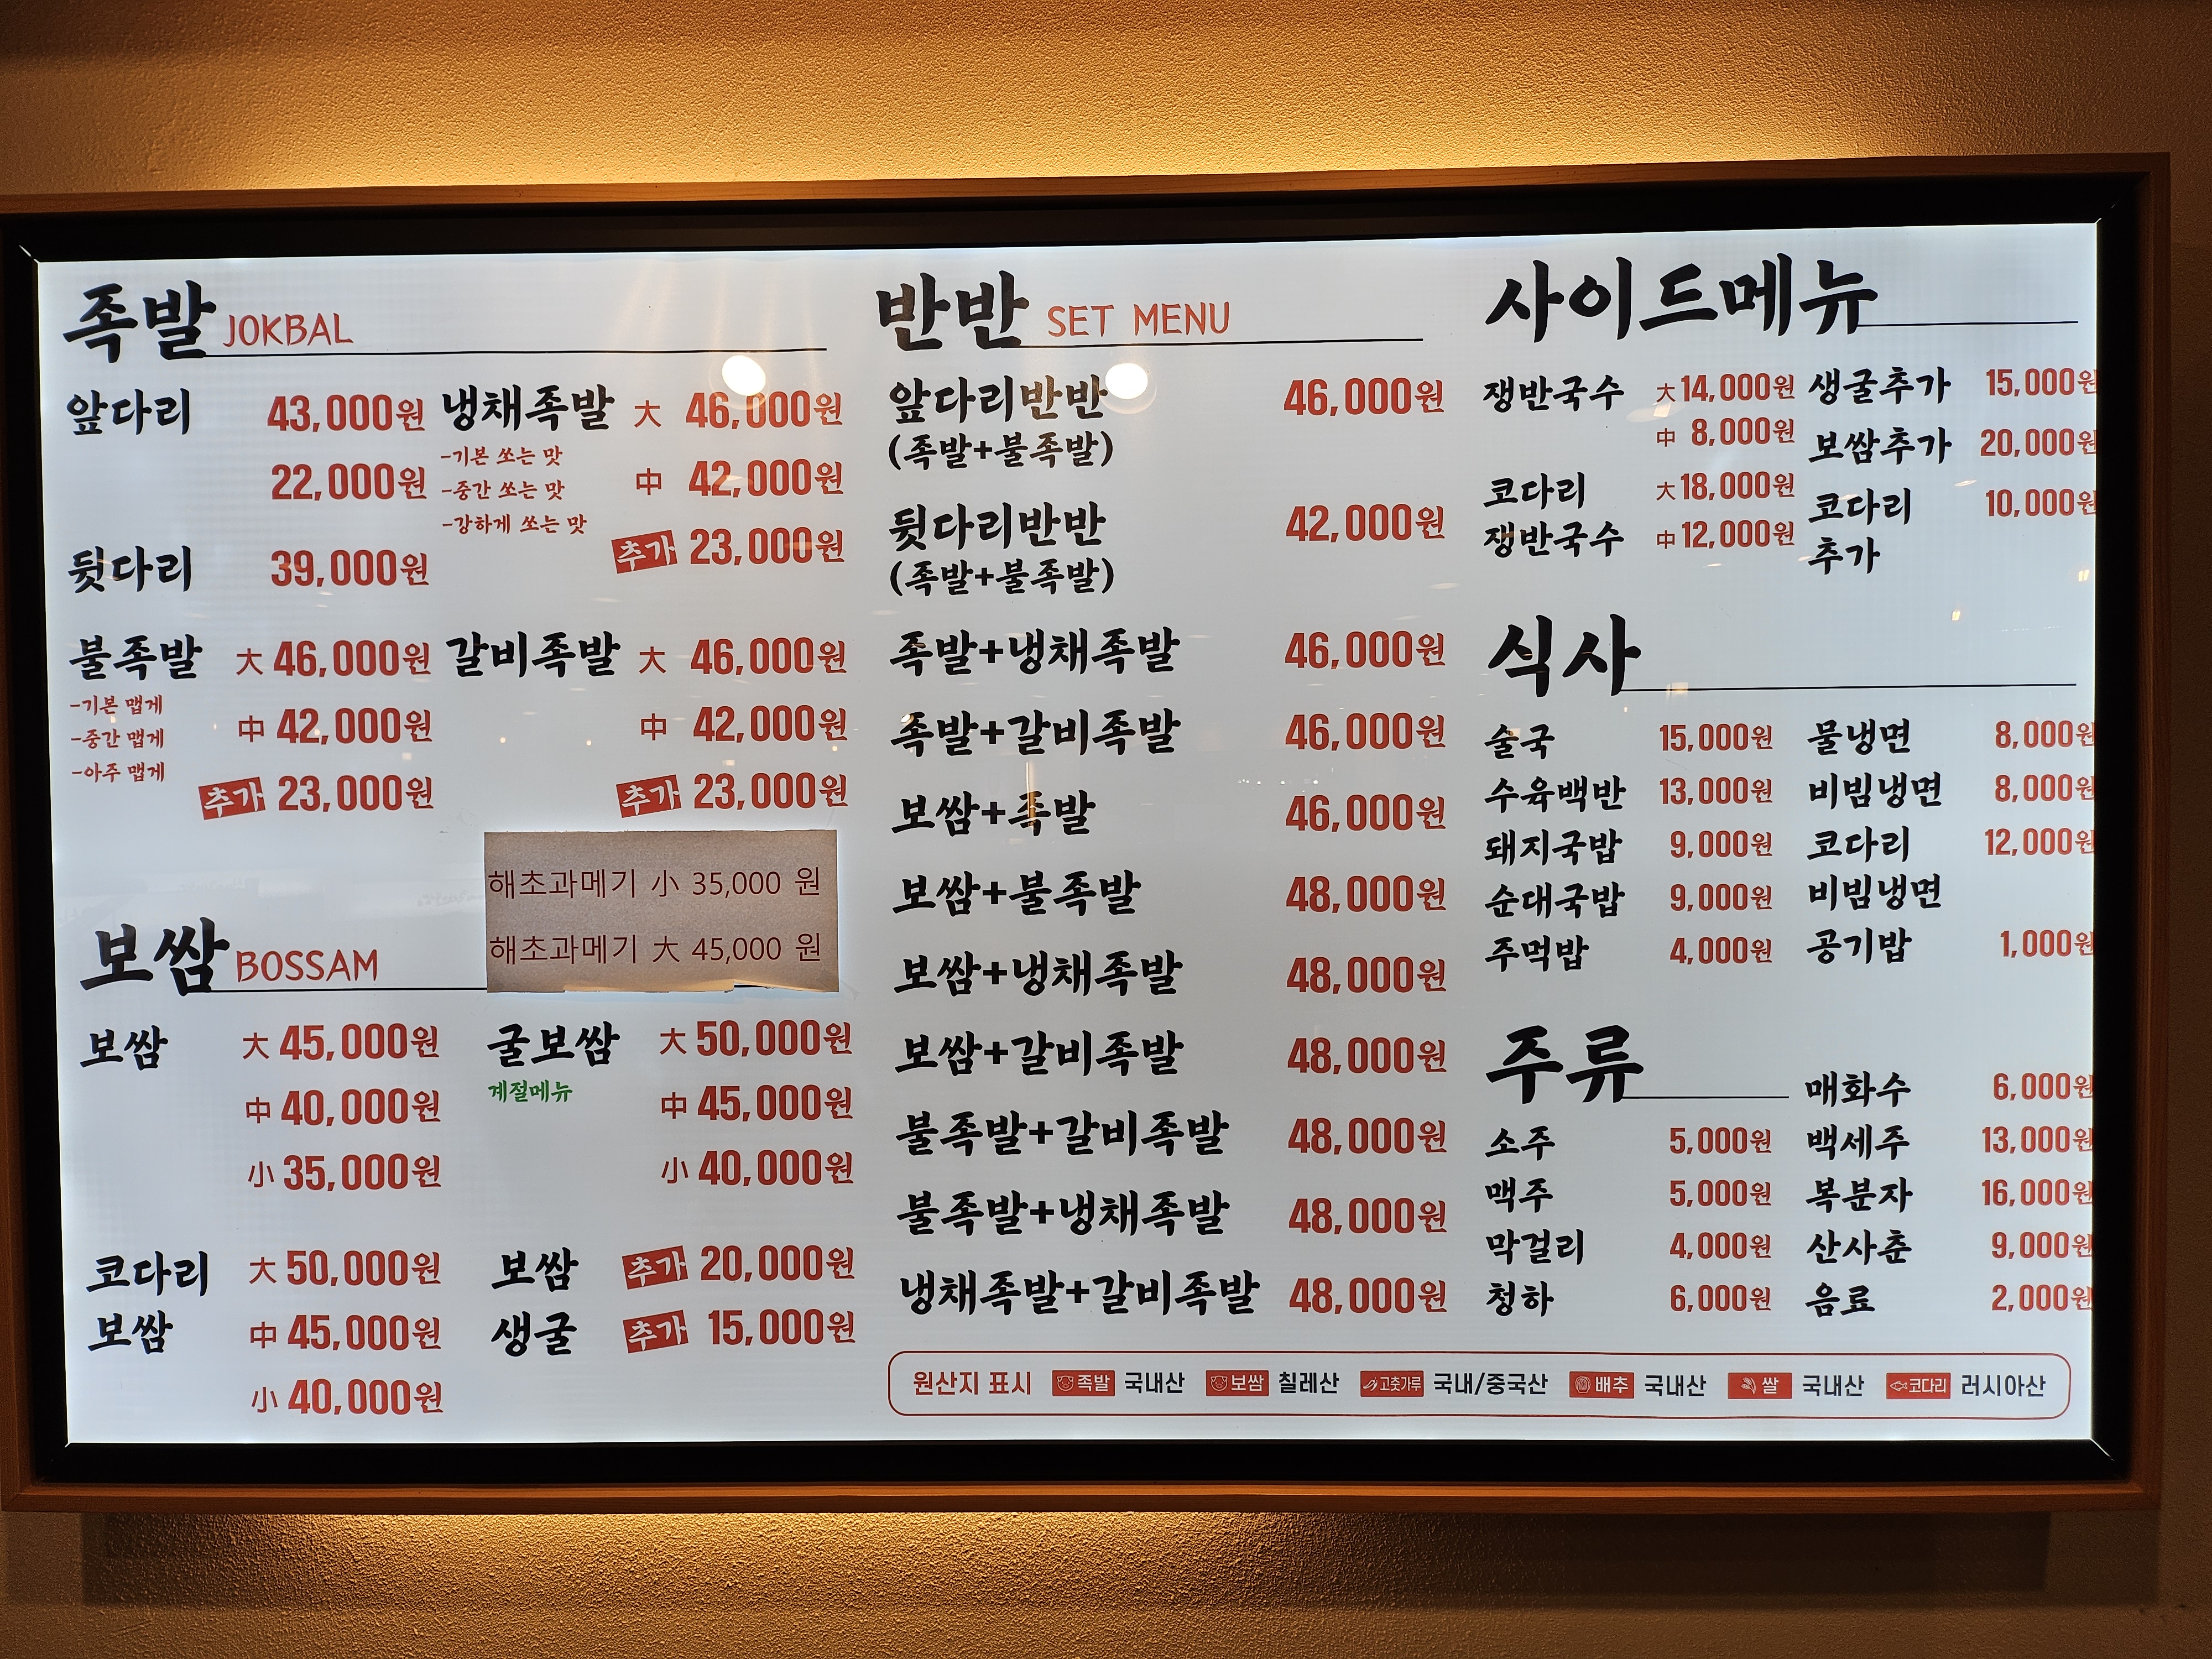 족발 JOKBAL
앞다리 43,000원
22,000원
뒷다리 39,000원
불족발 大 46,000원
-기본 맵게
-중간 맵게
-아주 맵게
中 42,000원
추가 23,000원
냉채족발 大 46,000원
-기본 쏘는 맛
-중간 쏘는 맛
-강하게 쏘는 맛
中 42,000원
추가 23,000원
갈비족발 大 46,000원
中 42,000원
추가 23,000원
해초과메기 小 35,000 원
해초과메기 大 45,000 원
보쌈 BOSSAM
보쌈 大 45,000원
中 40,000원
小 35,000원
코다리 大 50,000원
보쌈 中 45,000원
小 40,000원
굴보쌈 大 50,000원
계절메뉴
中 45,000원
小 40,000원
보쌈 추가 20,000원
생굴 추가 15,000원
반반 SET MENU
앞다리반반 46,000원
(족발+불족발)
뒷다리반반 42,000원
(족발+불족발)
족발+냉채족발 46,000원
족발+갈비족발 46,000원
보쌈+족발 46,000원
보쌈+불족발 48,000원
보쌈+냉채족발 48,000원
보쌈+갈비족발 48,000원
불족발+갈비족발 48,000원
불족발+냉채족발 48,000원
냉채족발+갈비족발 48,000원
사이드메뉴
쟁반국수 大 14,000원
中 8,000원
코다리 大 18,000원
쟁반국수 中 12,000원
생굴추가 15,000원
보쌈추가 20,000원
코다리 10,000원
추가
식사
술국 15,000원
수육백반 13,000원
돼지국밥 9,000원
순대국밥 9,000원
주먹밥 4,000원
물냉면 8,000원
비빔냉면 8,000원
코다리 12,000원
비빔냉면
공기밥 1,000원
주류
소주 5,000원
맥주 5,000원
막걸리 4,000원
청하 6,000원
매화수 6,000원
백세주 13,000원
복분자 16,000원
산사춘 9,000원
음료 2,000원
원산지 표시 족발 국내산 보쌈 칠레산 고춧가루 국내/중국산 배추 국내산 쌀 국내산 코다리 러시아산